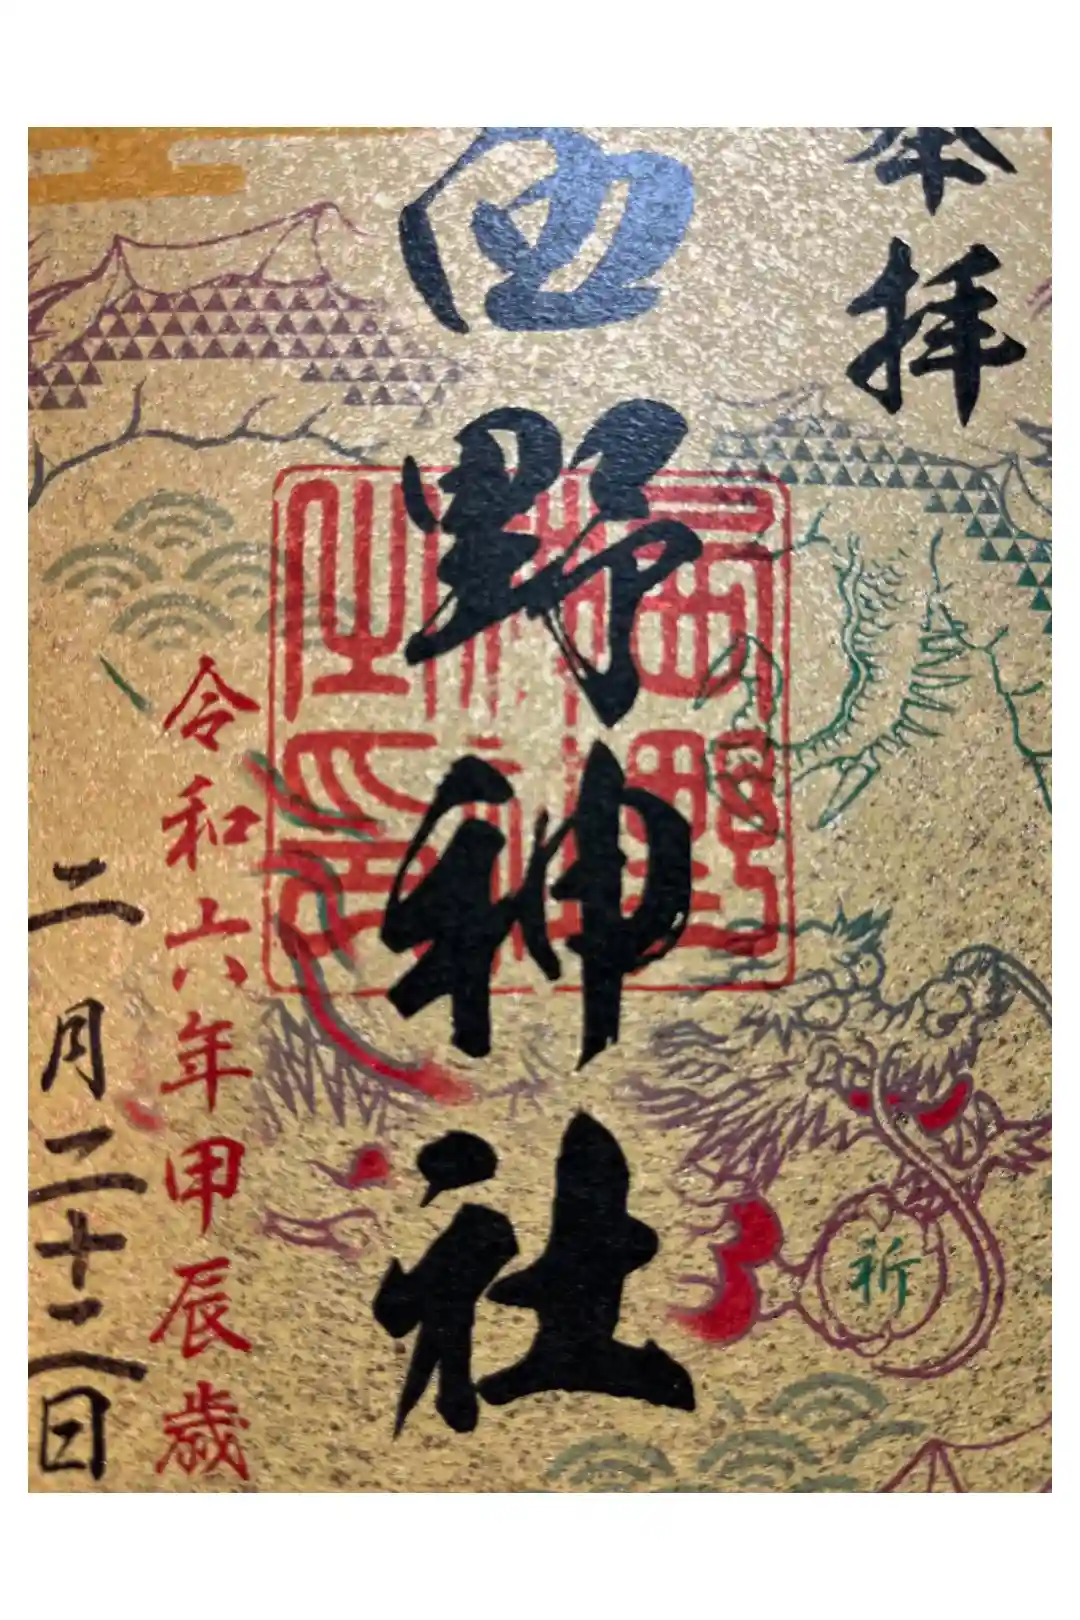 奉拝
西野神社
西野
神社
之印
祈
令和六年甲辰歳
二月二十二日